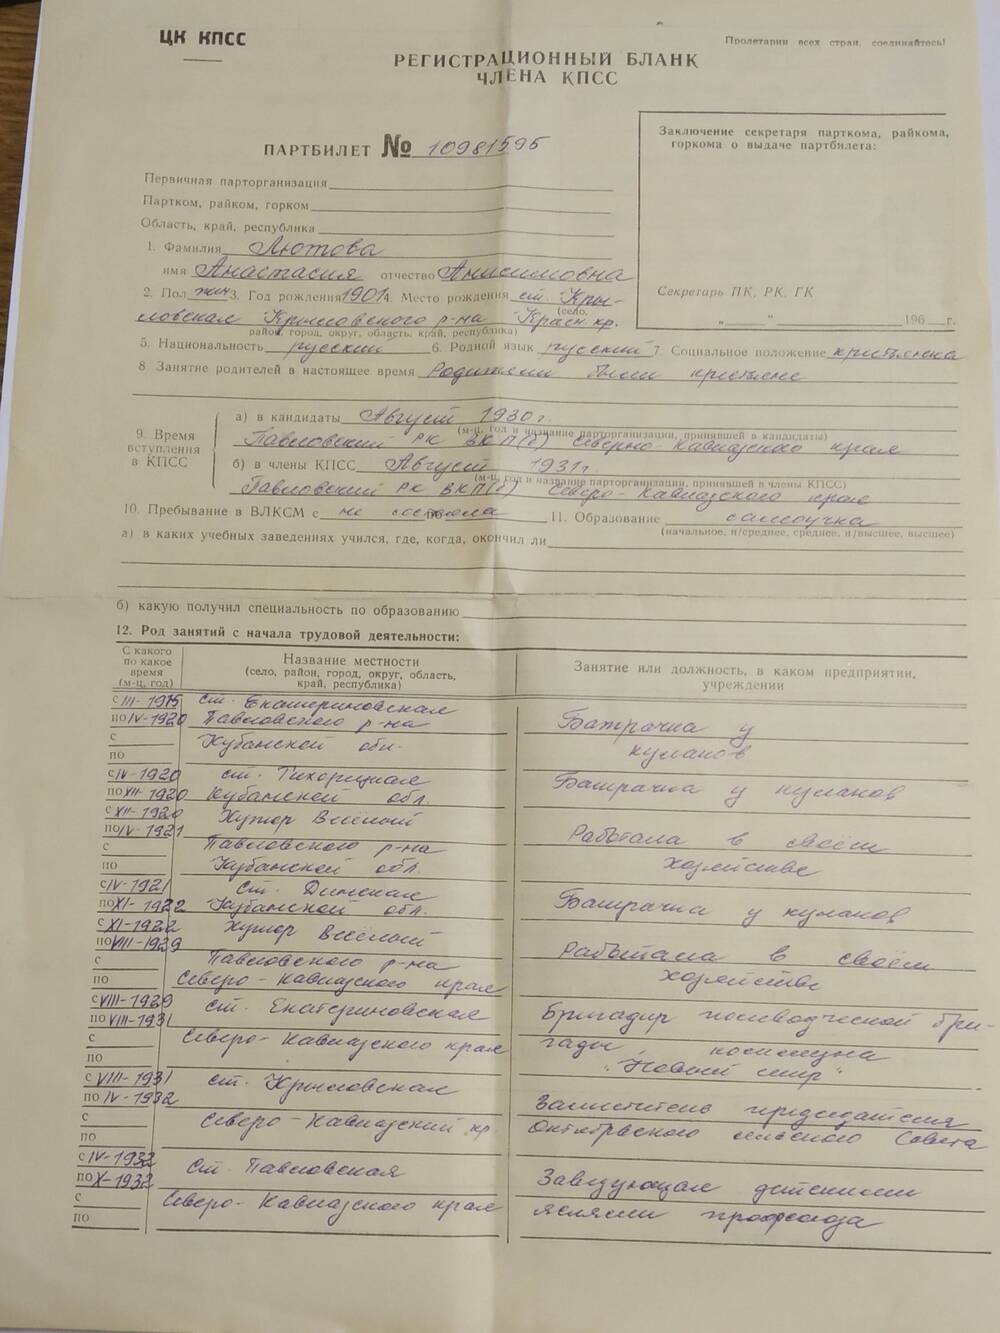 ЦК КПСС
Пролетарии всех стран, соединяйтесь!
РЕГИСТРАЦИОННЫЙ БЛАНК
ЧЛЕНА КПСС
ПАРТБИЛЕТ № 10981595
Заключение секретаря парткома, райкома,
горкома о выдаче партбилета:
Секретарь ПК, РК, ГК
„ “ 196 г.
Первичная парторганизация
Партком, райком, горком
Область, край, республика
1. Фамилия Лютова
имя Анастасия отчество Анисимовна
2. Пол жен 3. Год рождения 1901 4. Место рождения ст. Кры-
(село,
ловская Крыловского р-на Красн. кр.
район, город, округ, область, край, республика)
5. Национальность русский 6. Родной язык русский 7. Социальное положение крестьянка
8. Занятие родителей в настоящее время Родители были крестьяне
9. Время вступления в КПСС
а) в кандидаты Август 1930 г.
(м-ц, год и название парторганизации, принявшей в кандидаты)
Павловский РК ВКП(б) Северно Кавказского края
б) в члены КПСС Август 1931 г.
(м-ц, год и название парторганизации, принявшей в члены КПСС)
Павловский РК ВКП(б) Северо-Кавказского края
10. Пребывание в ВЛКСМ с не состояла по 11. Образование самоучка
(начальное, н/среднее, среднее, н/высшее, высшее)
а) в каких учебных заведениях учился, где, когда, окончил ли
б) какую получил специальность по образованию
12. Род занятий с начала трудовой деятельности:
С какого по какое время (м-ц, год)
Название местности
(село, район, город, округ, область, край, республика)
Занятие или должность, в каком предприятии, учреждении
с III-1915 ст. Екатериновская
по IV-1920 Павловского р-на Батрачка у
с Кубанской обл. кулаков
по
с IV-1920 ст. Тихорецкая
по XII-1920 Кубанской обл. Батрачка у кулаков
с XII-1920 Хутор Весёлый
по IV-1921 Павловского р-на Работала в своём
с
по Кубанской обл. хозяйстве
с IV-1921 ст. Динская
по XI-1922 Кубанской обл. Батрачка у кулаков
с XI-1922 Хутор Весёлый
по VIII-1929 Павловского р-на Работала в своём
с
по Северо-Кавказского края хозяйстве
с VIII-1929 ст. Екатериновская
по VIII-1931 Бригадир полеводческой бри-
с Северо-Кавказского края гады, коммуна
по "Новый мир"
с VIII-1931 ст. Крыловская
по IV-1932 Заместитель председателя
с Северо-Кавказский кр. Октябрьского сельского Совета
по
с IV-1932 ст. Павловская
по X-1932 Заведующая детскими
с Северо-Кавказского края яслями профсоюза
по